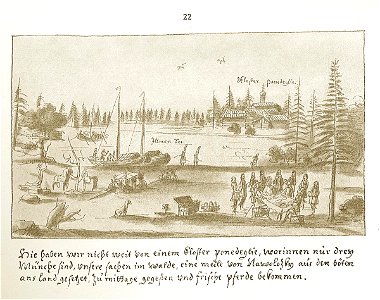 22
Closter
Ilmen See
Hie haben wir nicht weit von einem Closter ponedeglie, worinnen nur drey
Münche sind, unsere sachen im walde, eine meile von Nawolofky aus den böten
ans land gesetzet, zu mittage gegessen und frische pferde bekommen.